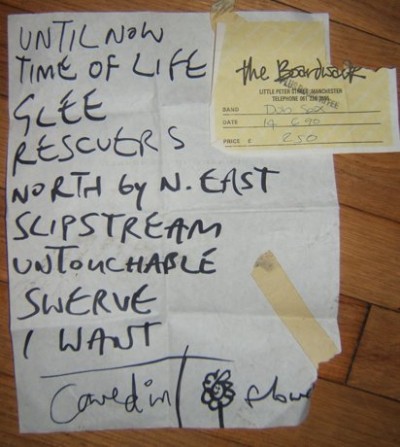 UNTIL NOW
TIME OF LIFE
GLEE
RESCUERS
NORTH by N. EAST
SLIPSTREAM
UNTOUCHABLE
SWERVE
I WANT
Caved in
the Boardwalk
LITTLE PETER STREET, MANCHESTER
TELEPHONE 061 228
BAND
DATE 14 6 90
PRICE £ 2.50